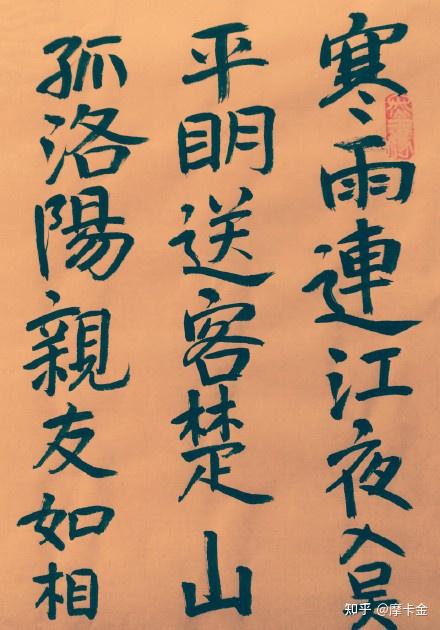 寒雨連江夜入吴
平明送客楚山
孤洛陽親友如相
知乎 @摩卡金